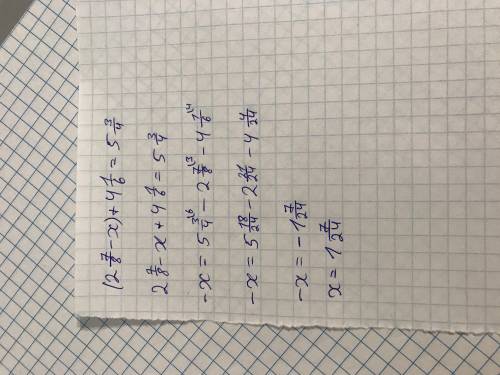 (2 7/8 - x) + 4 1/6 = 5 3/4
2 7/8 - x + 4 1/6 = 5 3/4
-x = 5 3/4 \6 - 2 7/8 \3 - 4 1/6 \4
-x = 5 18/24 - 2 21/24 - 4 4/24
-x = -1 7/24
x = 1 7/24